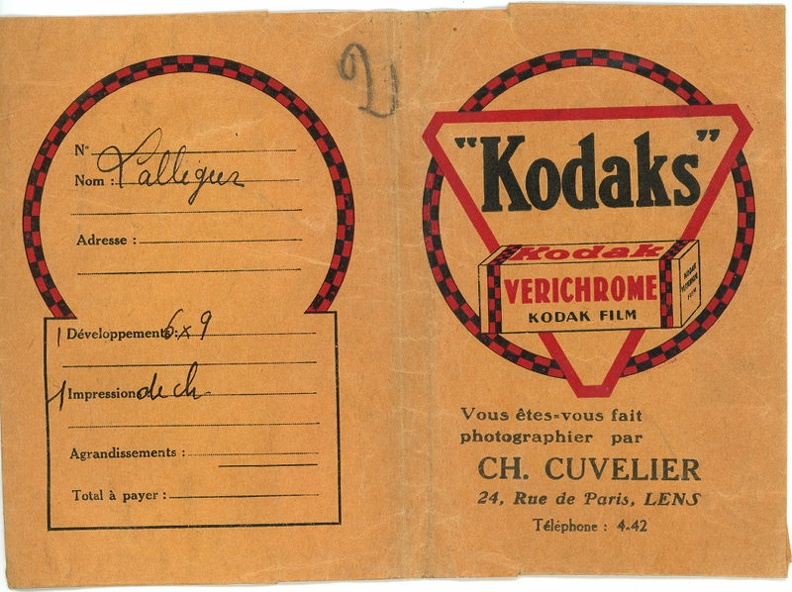 2
N°
Nom : Lalligier
Adresse :
1 Développements: 6x9
1 Impression de ch.
Agrandissements :
Total à payer :
"Kodaks"
Kodak
VERICHROME
KODAK FILM
KODAK
VERICHROME
FILM
Vous êtes-vous fait
photographier par
CH. CUVELIER
24, Rue de Paris, LENS
Téléphone : 4-42